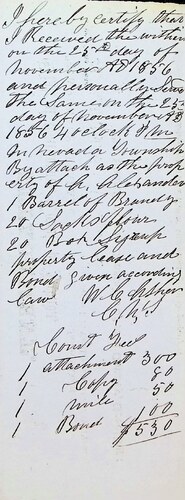 I hereby certify that
I Received the within
on the 25th day of
November AD 1856
and personally Served
the Same on the 25
day of November AD
1856 4 oclock P M
In Nevada Township
By attach as the prop
erty of
1 Barrel of Brandy
20 Sacks flour
20 Box Syrup
property lease and
Bond given according
law W C
Court Fees
1 attachment 300
1 Copy 80
1 mile 50
1 Bond 100
$530